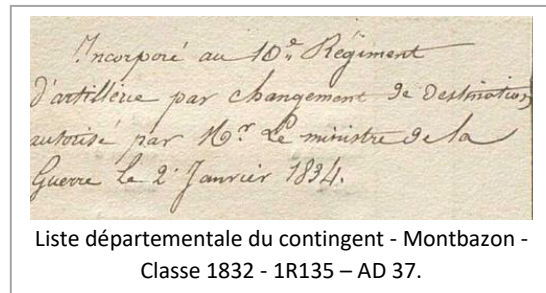 Incorporé au 10e. Régiment
d'artillerie par changement de Destination
autorisé par Mr. Le ministre de la
Guerre Le 2 Janvier 1834.
Liste départementale du contingent - Montbazon -
Classe 1832 - 1R135 – AD 37.